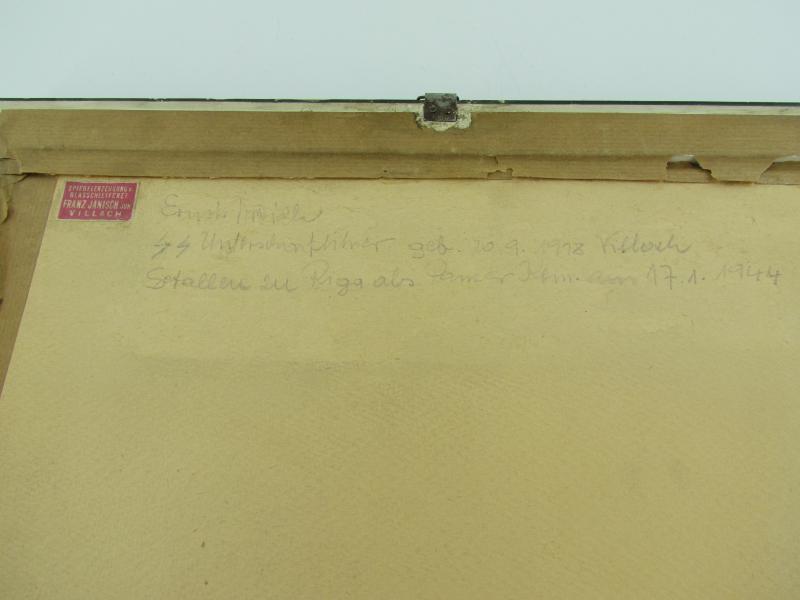 SPIEGELERZEUGUNG U.
GLASSCHLEIFEREI
FRANZ JANISCH JUN
VILLACH
Ernst
SS Unterscharführer geb. 20.9.1918 Villach
Gefallen zu Riga als Panzer Kom. am 17.1.1944